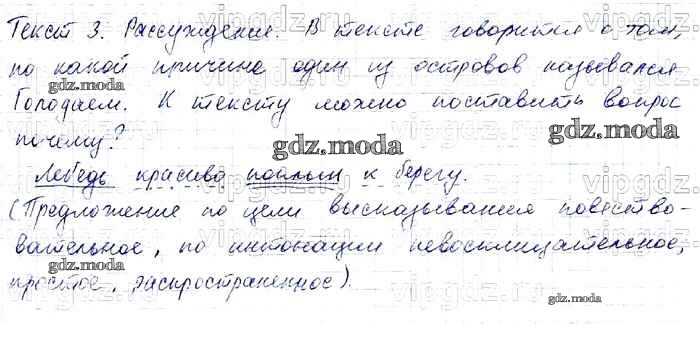 Текст 3. Рассуждение. В тексте говорится о том,
по какой причине один из островов назывался
Голодаем. К тексту можно поставить вопрос
почему?
Лебедь красиво поплыл к берегу.
(Предложение по цели высказывания повество-
вательное, по интонации невосклицательное,
простое, распространенное).
gdz.moda
gdz.moda
gdz.moda
gdz.moda
gdz.moda
gdz.moda
vipgdz.ru